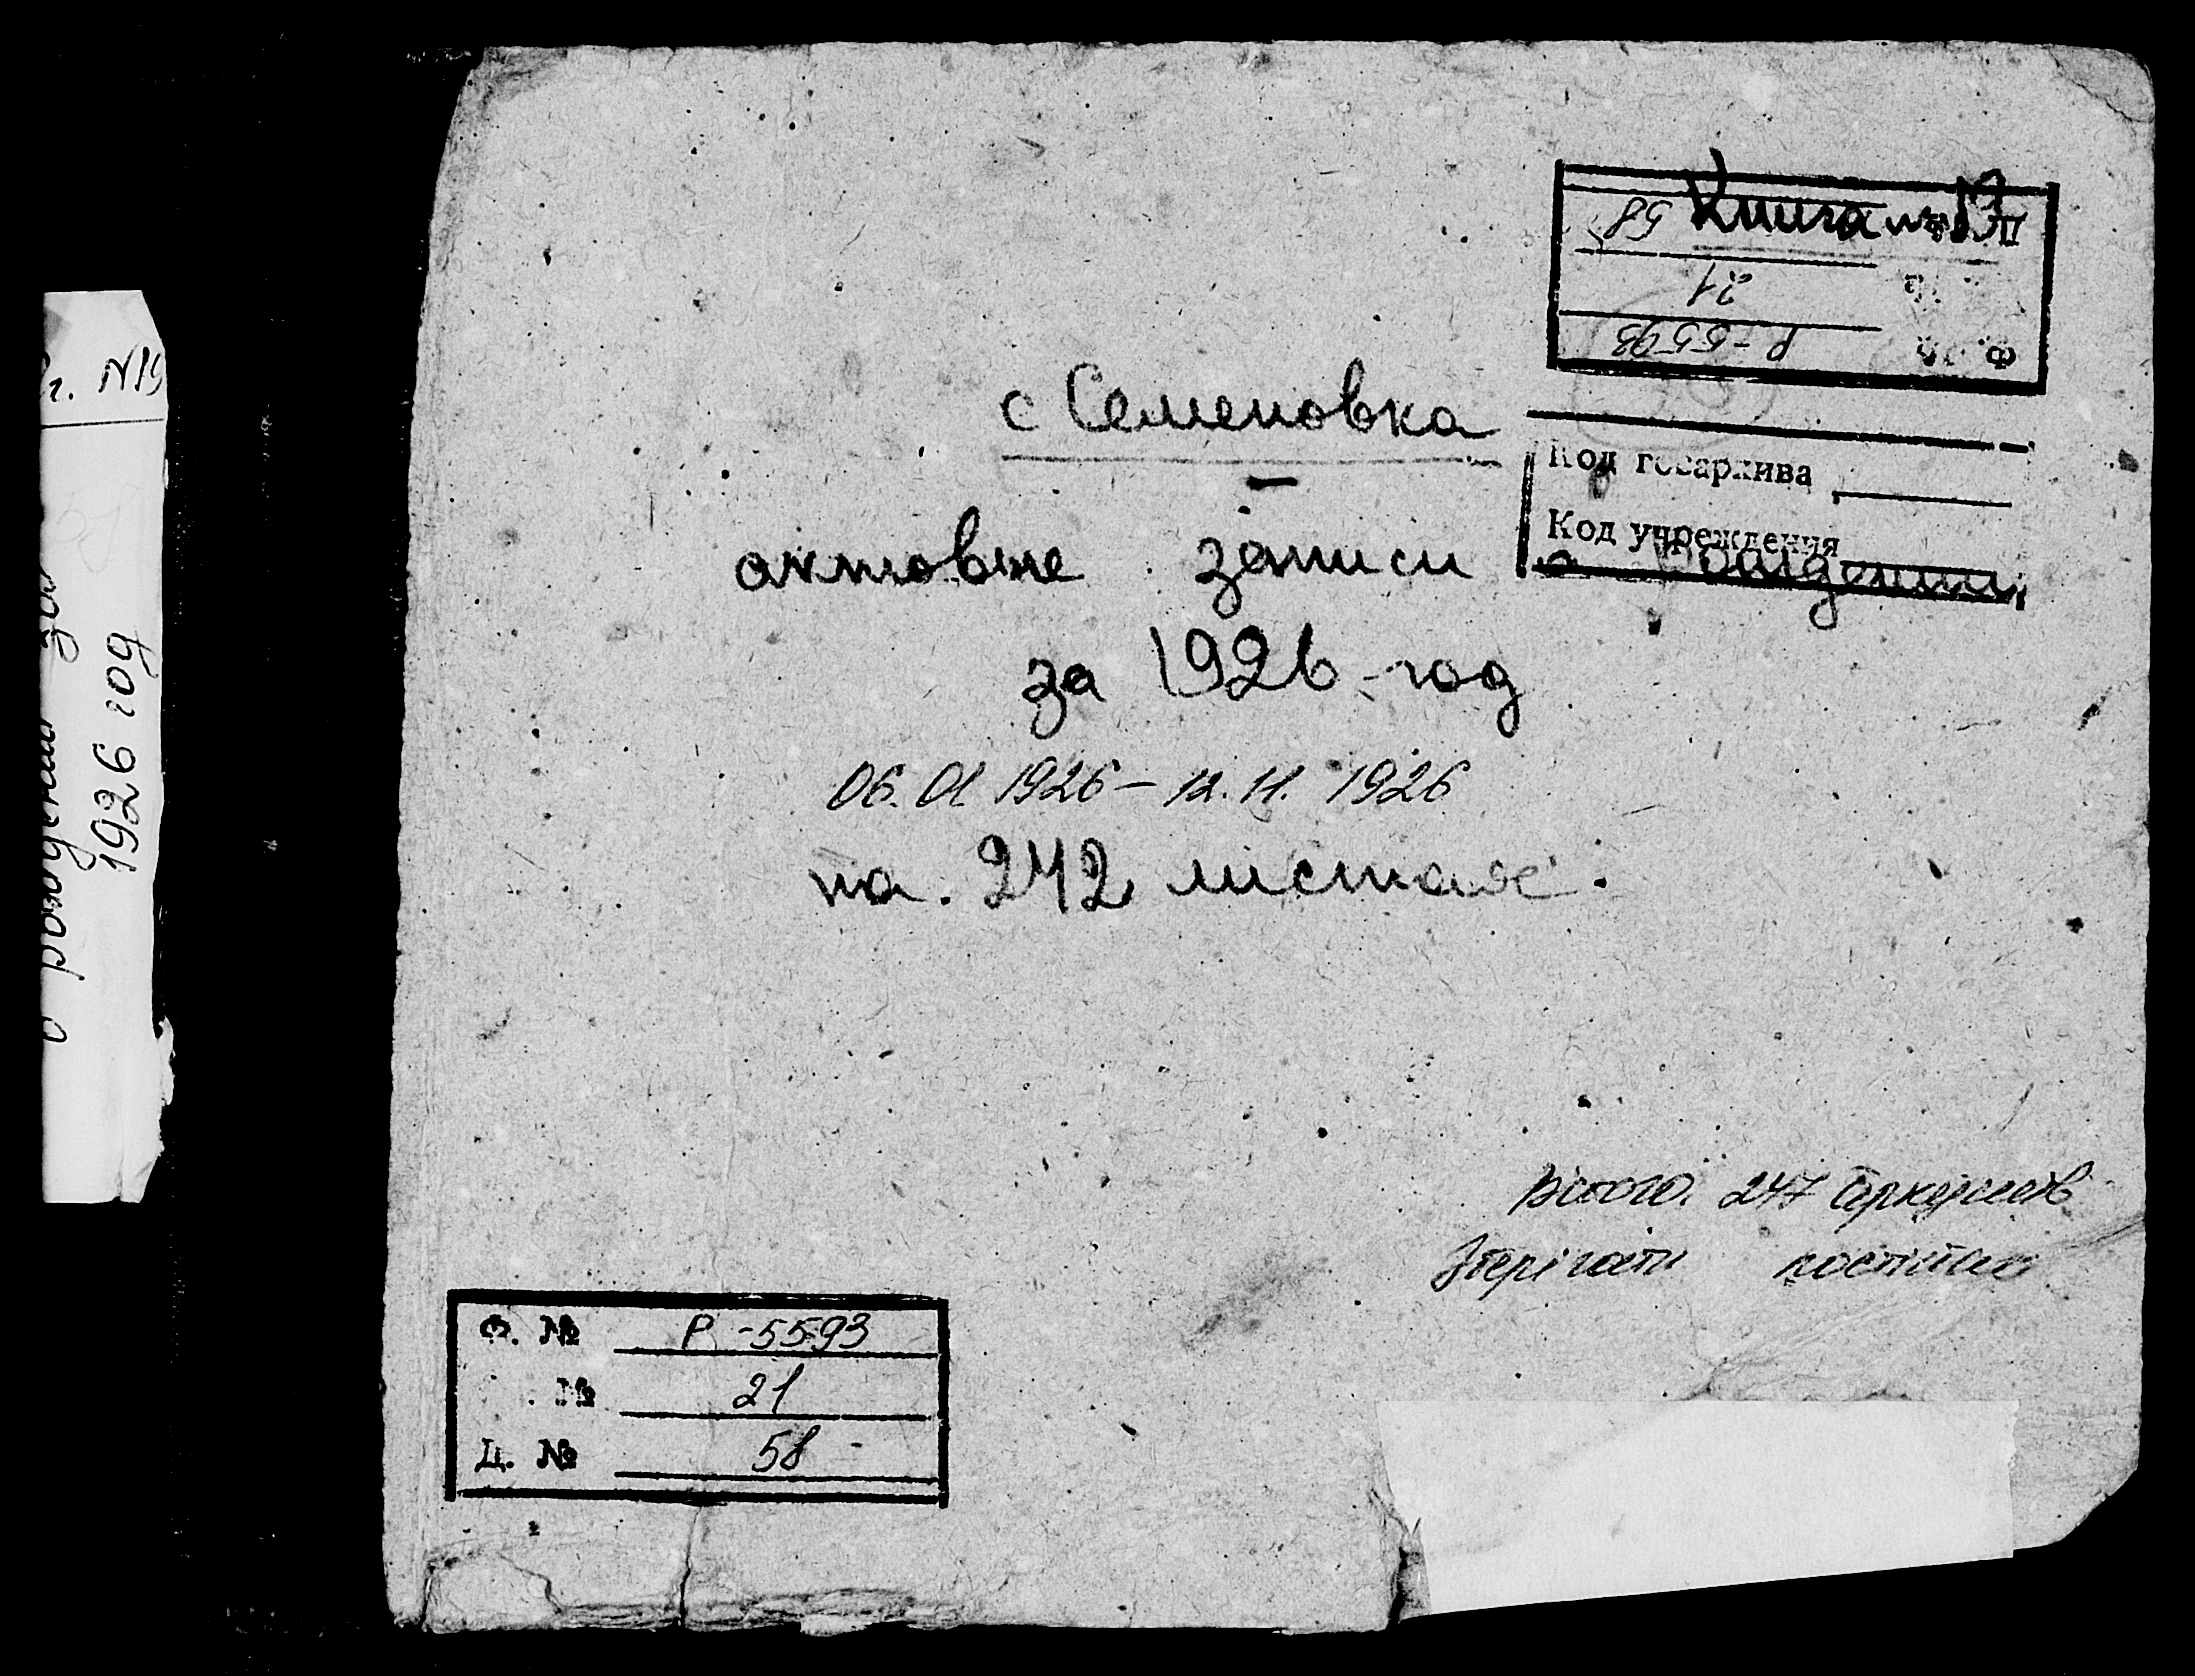 г. №19
о рождении за
1926 год
Книга №
58
21
Р-5593
Ф. №
с Семеновка
Код госархива
Код учреждения
актовые записи о рождении
за 1926 год
06.01 1926 – 12.11. 1926
на. 242 листах.
Всього. 247 аркушів
Зберігати постійно
Ф. № Р-5593
№ 21
Д. № 58